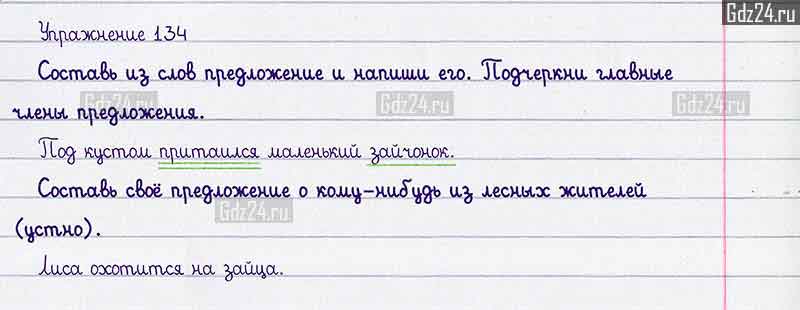 Gdz24.ru
Упражнение 134
Составь из слов предложение и напиши его. Подчеркни главные
члены предложения.
Gdz24.ru Gdz24.ru Gdz24.ru
Под кустом притаился маленький зайчонок.
Составь своё предложение о кому-нибудь из лесных жителей
Gdz24.ru
(устно).
Лиса охотится на зайца.